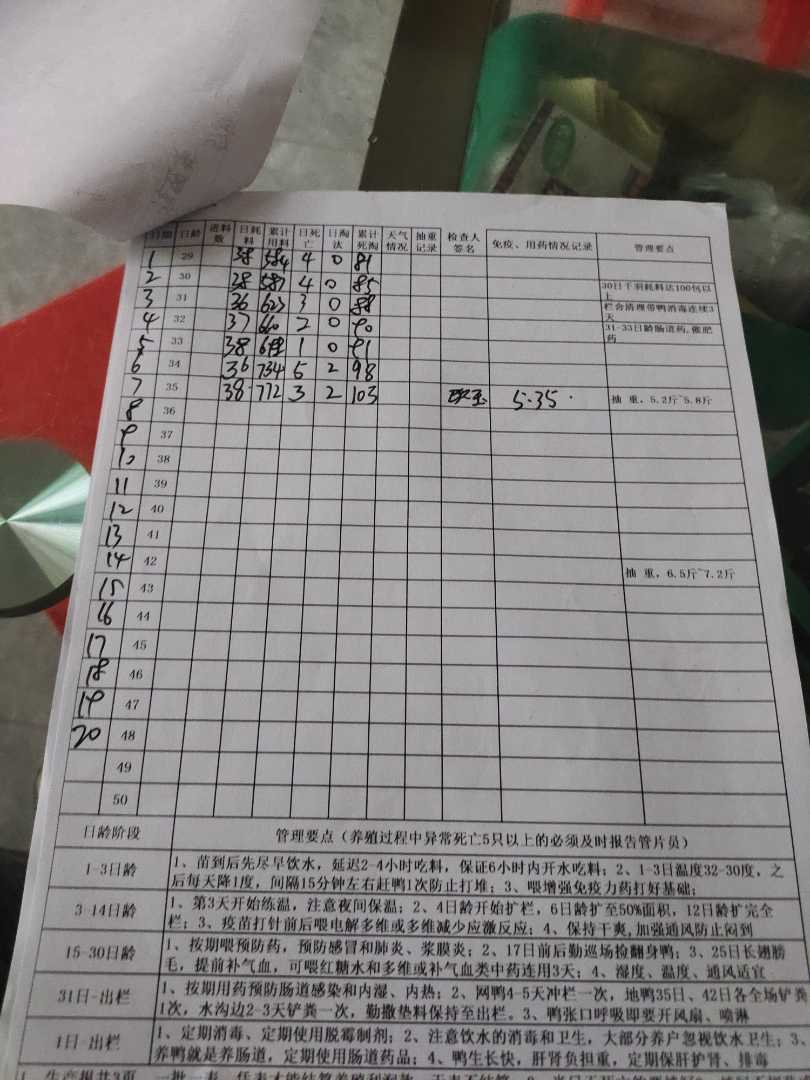 日期 日龄 进料数 日耗料 累计用料 日死亡 日淘汰 累计死淘 天气情况 抽重记录 检查人签名 免疫、用药情况记录 管理要点
1 29 38 584 4 0 81
2 30 38 587 4 0 85 30日千羽耗料达100包以上
3 31 36 623 3 0 88 栏舍清理带鸭消毒连续3天
4 32 37 660 2 0 90 31-33日龄肠道药,催肥药
5 33 38 1 0 91
6 34 36 734 5 2 98
7 35 38 772 3 2 103 5.35. 抽 重，5.2斤~5.8斤
8 36
9 37
10 38
11 39
12 40
13 41
14 42 抽 重，6.5斤~7.2斤
15 43
16 44
17 45
18 46
19 47
20 48
49
50
日龄阶段 管理要点（养殖过程中异常死亡5只以上的必须及时报告管片员）
1-3日龄 1、苗到后先尽早饮水，延迟2-4小时吃料，保证6小时内开水吃料；2、1-3日温度32-30度，之
后每天降1度，间隔15分钟左右赶鸭1次防止打堆；3、喂增强免疫力药打好基础；
3-14日龄 1、第3天开始练温，注意夜间保温；2、4日龄开始扩栏，6日龄扩至50%面积，12日龄扩完全
栏；3、疫苗打针前后喂电解多维或多维减少应激反应；4、保持干爽,加强通风防止闷到
15-30日龄 1、按期喂预防药，预防感冒和肺炎、浆膜炎；2、17日前后勤巡场捡翻身鸭；3、25日长翅膀
毛，提前补气血，可喂红糖水和多维或补气血类中药连用3天；4、湿度、温度、通风适宜
31日-出栏 1、按期用药预防肠道感染和内湿、内热；2、网鸭4-5天冲栏一次，地鸭35日、42日各全场铲粪
1次，水沟边2-3天铲粪一次，勤撒垫料保持至出栏。3、鸭张口呼吸即要开风扇、喷淋
1日-出栏 1、定期消毒、定期使用脱霉制剂；2、注意饮水的消毒和卫生，大部分养户忽视饮水卫生；3、
养鸭就是养肠道，定期使用肠道药品；4、鸭生长快，肝肾负担重，定期保肝护肾、排毒
1、生产报共3页，一批一表，